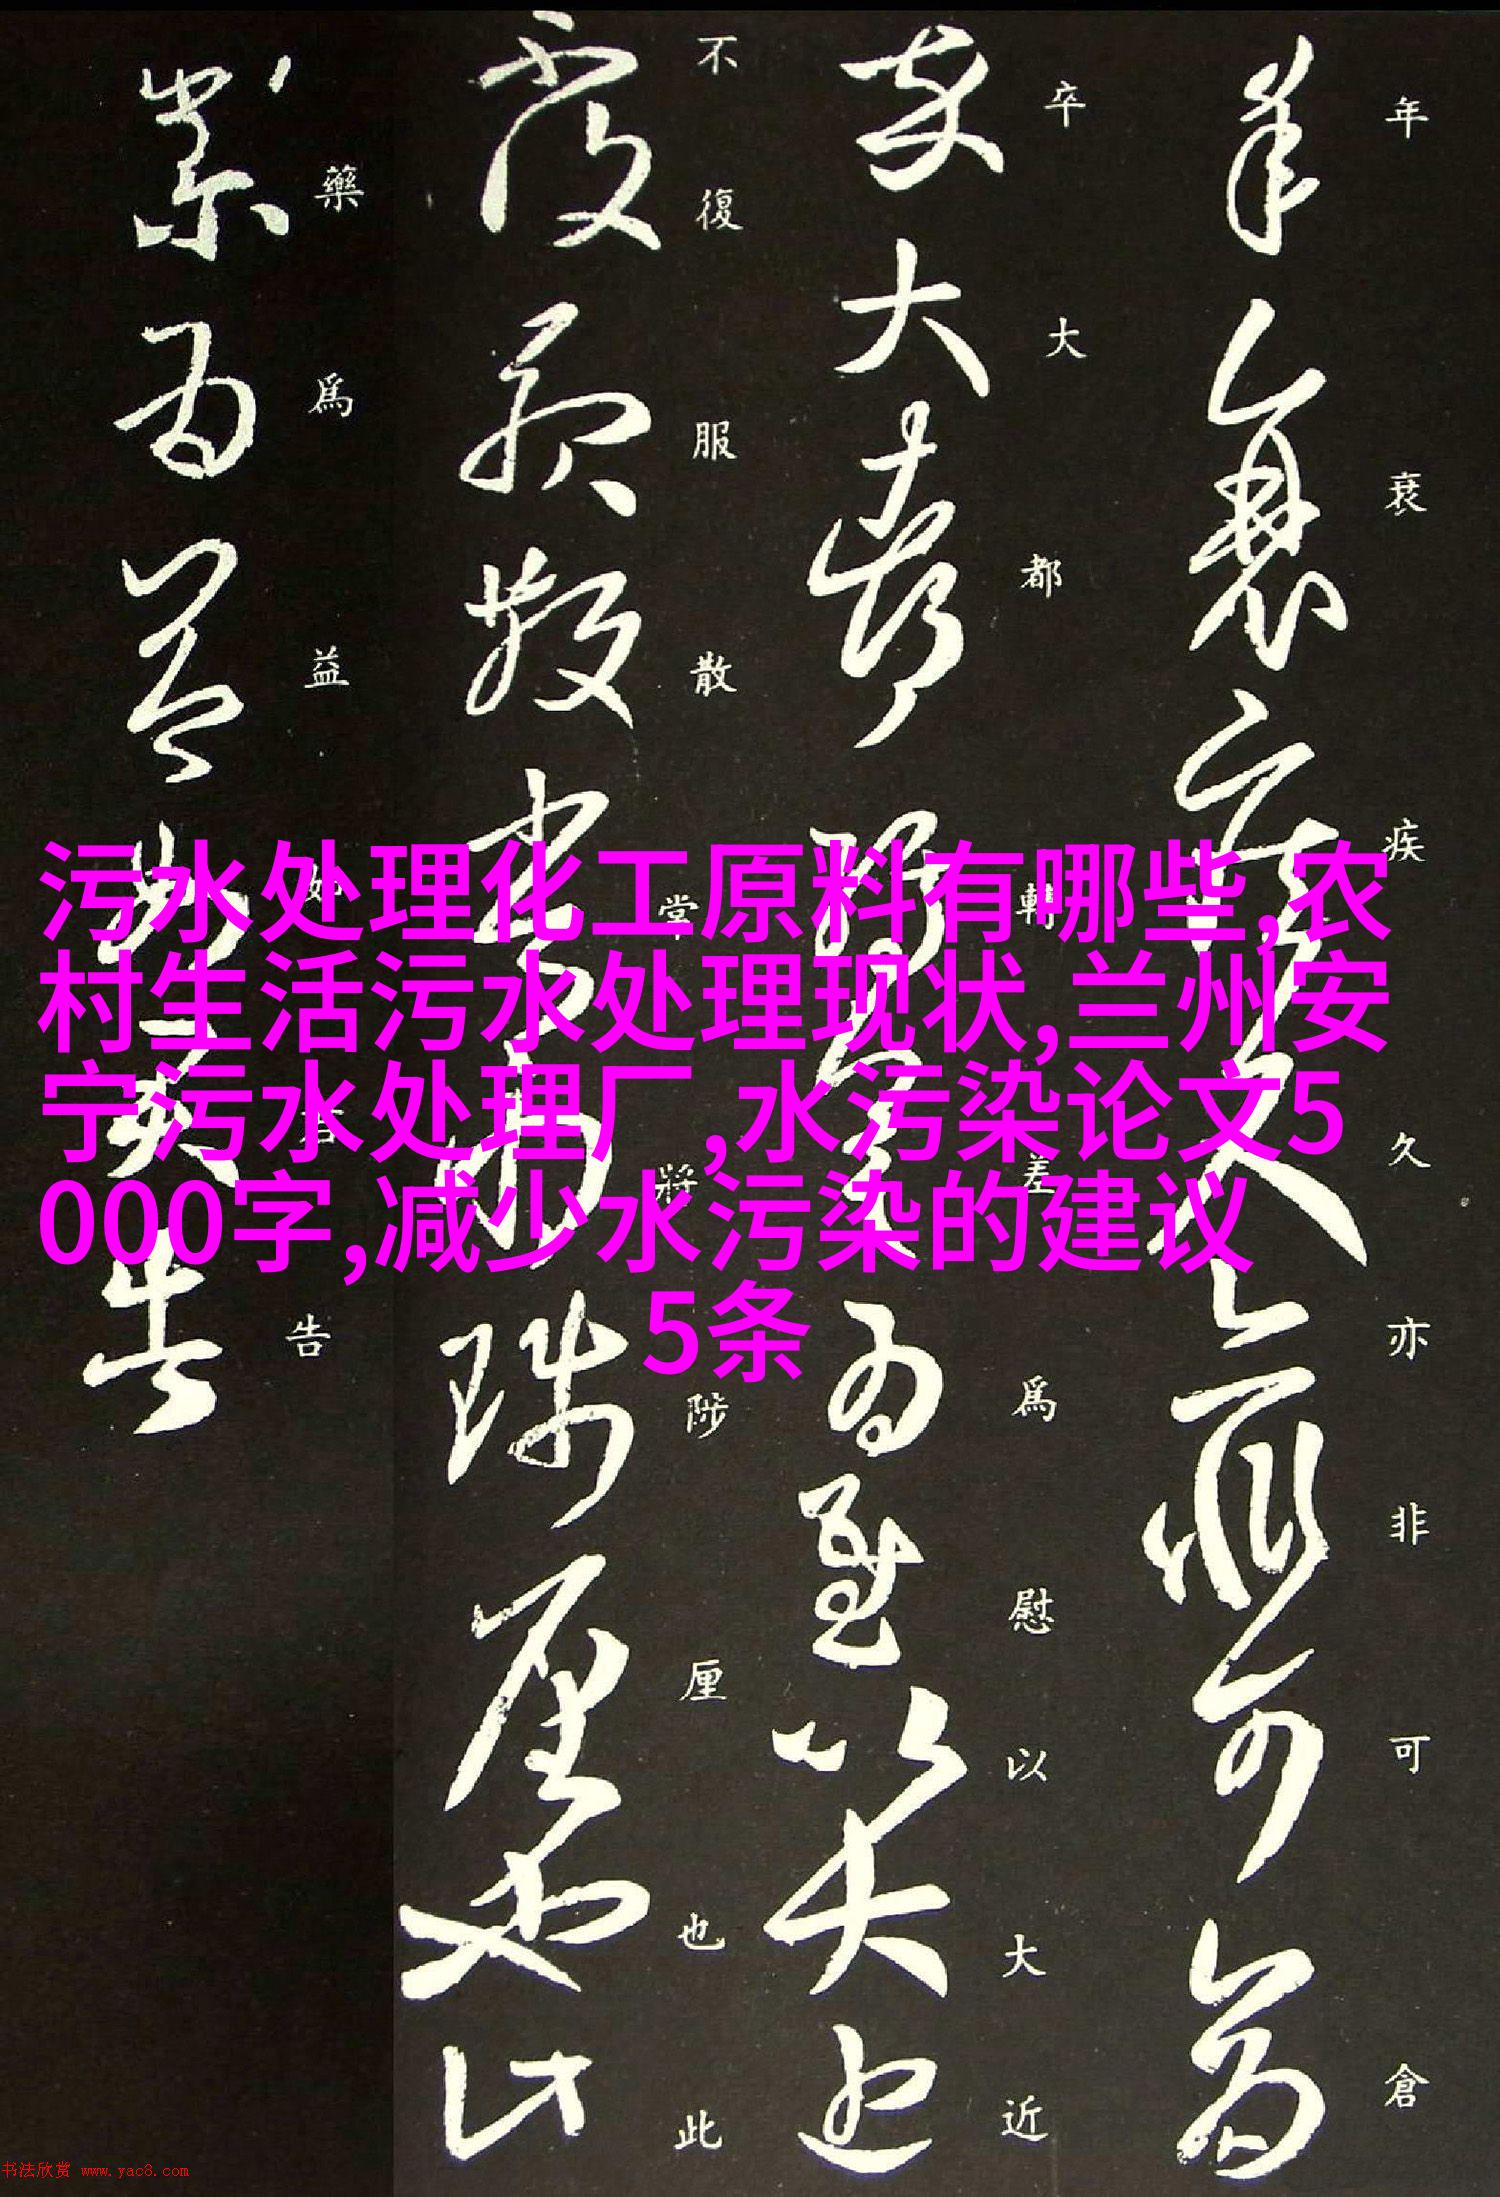 年衰疾久亦非可倉
卒大都轉差為慰以大近
不復服散常將陟厘也此
藥為益如君告
污水处理化工原料有哪些,农
村生活污水处理现状,兰州安
宁污水处理厂,水污染论文5
000字,减少水污染的建议
5条
书法欣赏 www.yac8.com